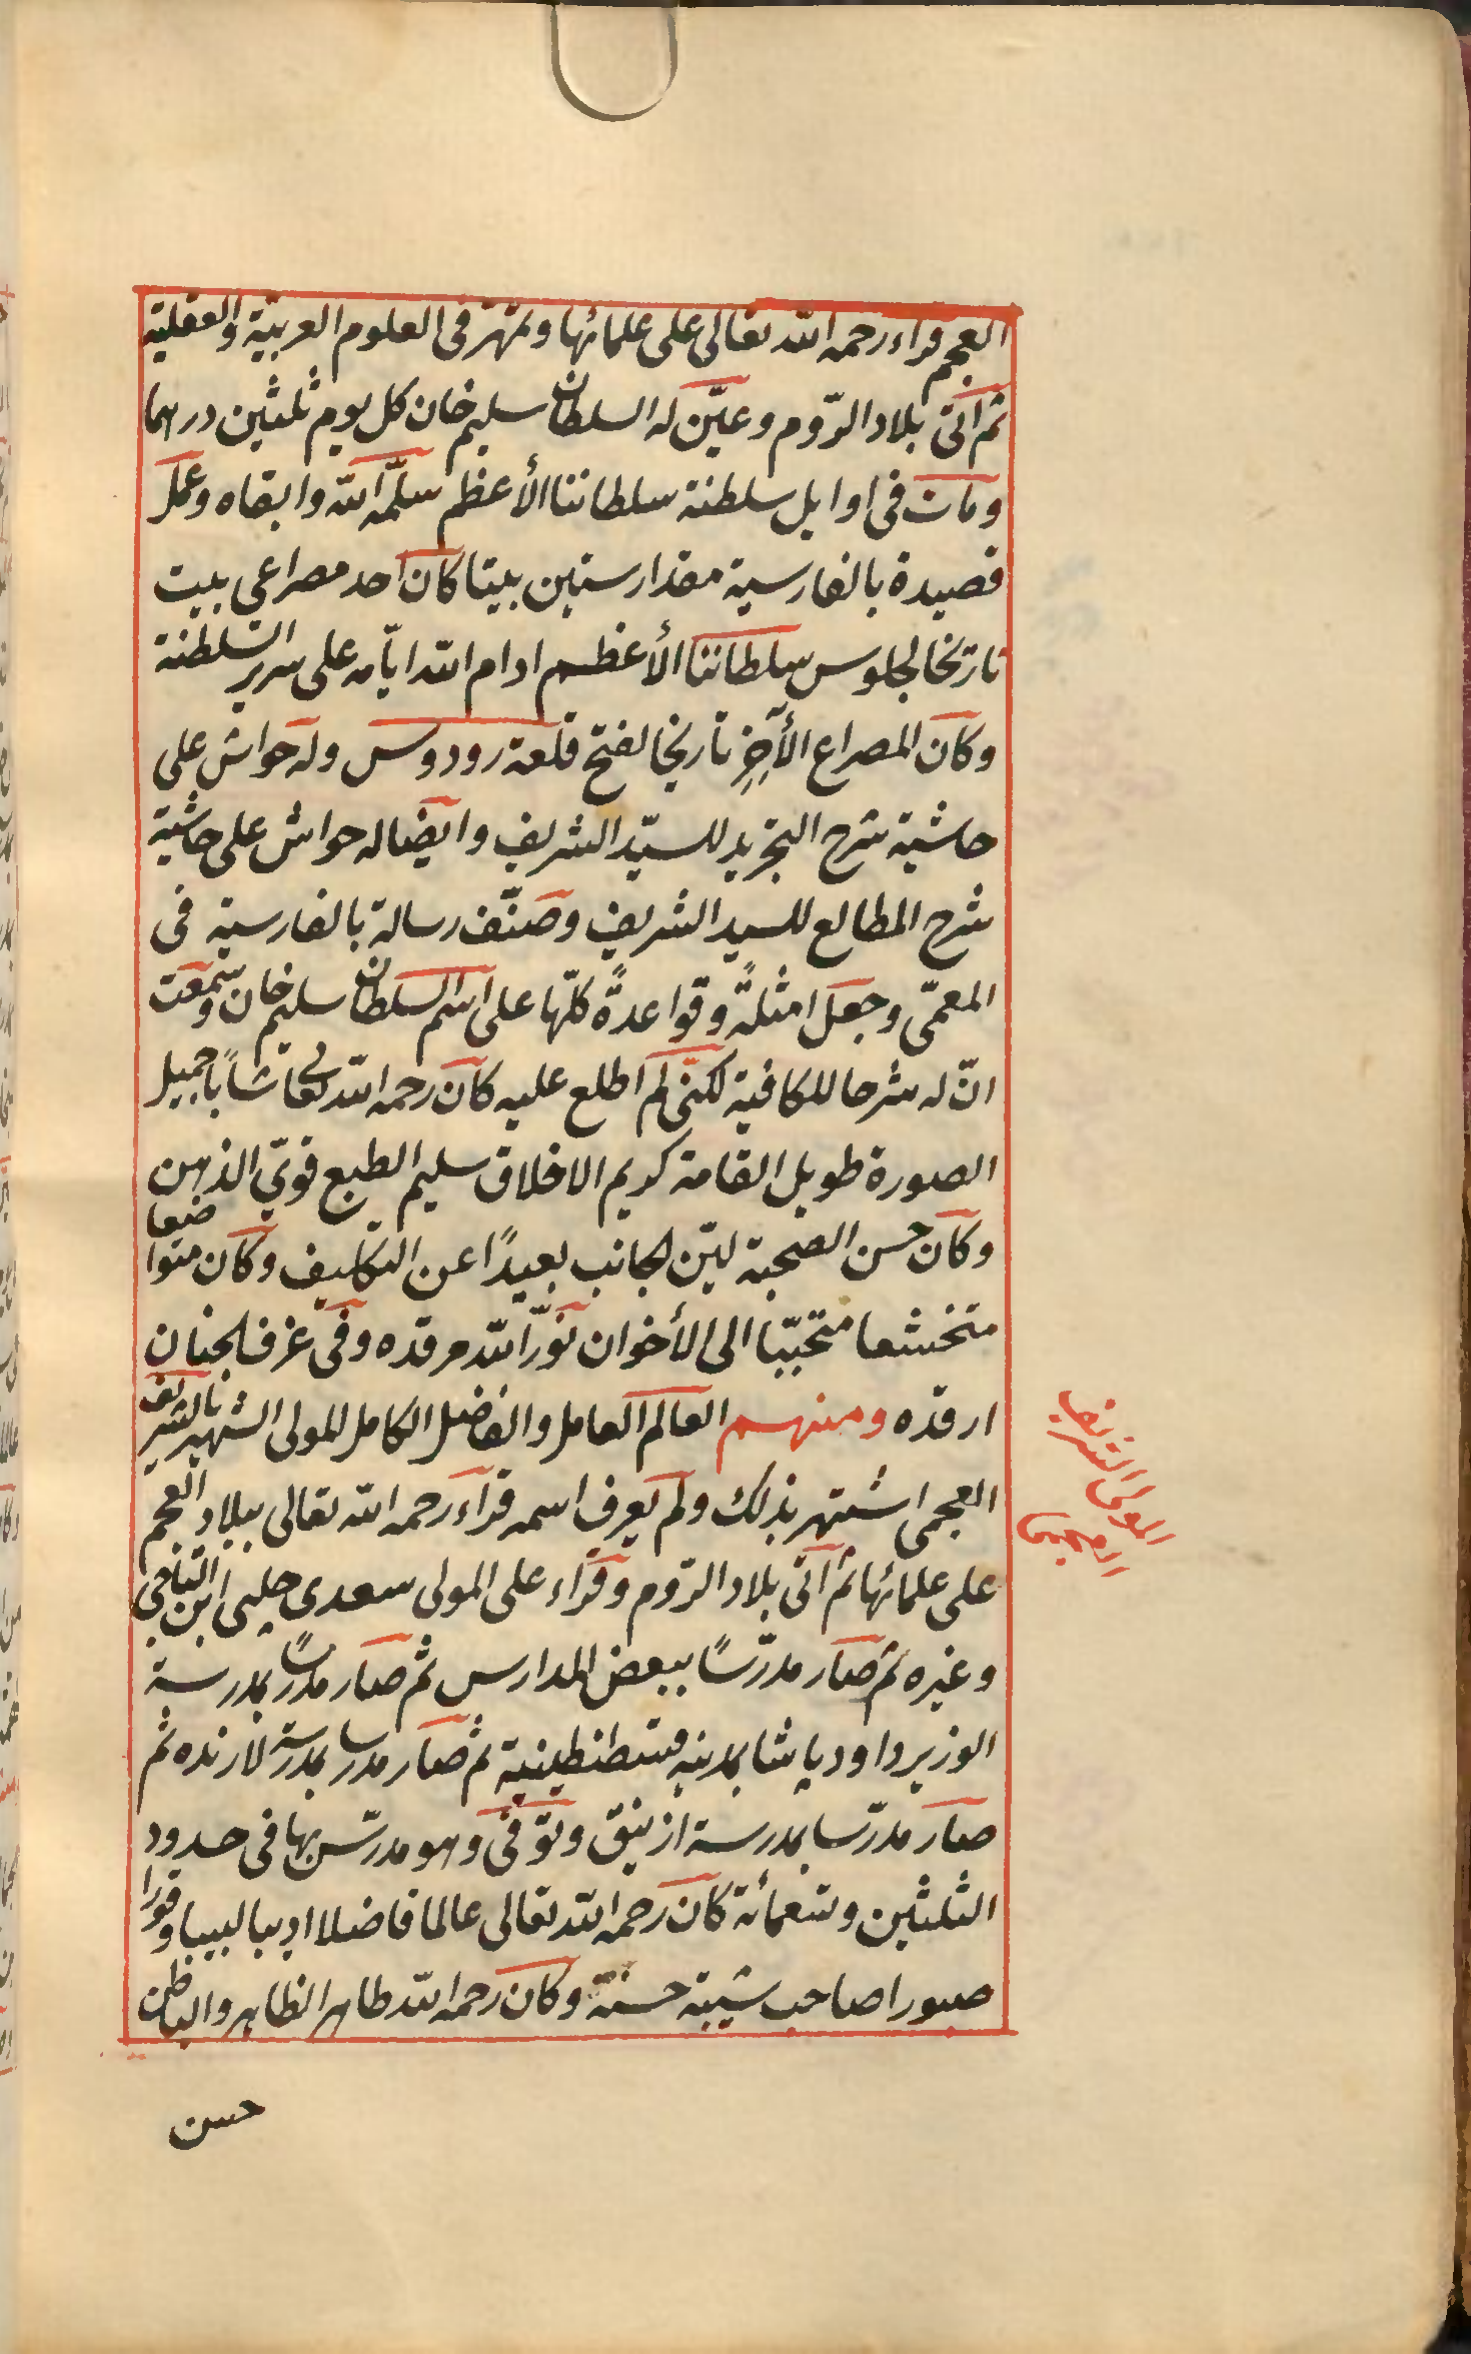 العجم قراء رحمه الله تعالى على علمائها وتمهّر فى العلوم العربيّة والعقليّة
ثم اتى بلاد الرّوم وعيّن له السلطان سليم خان كل يوم ثلثين درهما
ومات فى اوايل سلطنة سلطاننا الأعظم سلّمه الله وابقاه وعمل
قصيدة بالفارسية مقدار ستين بيتا كان احد مصراعى بيت
تاريخا لجلوس سلطاننا الأعظم ادام الله ايّامه على سرير السّلطنة
وكان المصراع الأخِرِ تاريخا لفتح قلعة رودوس وله حواش على
حاشية شرح التجريد للسيّد الشريف وايضا له حواش على حاشية
شرح المطالع للسيد الشريف وصنّف رسالة بالفارسية فى
المعمّى وجعل امثلةً وقواعدةً كلّها على اسم السلطان سليم خان وسمعت
انّ له شرحا للكافية لكنى لم اطلع عليه كان رحمه الله تعالى شابًا جميل
الصورة طويل القامة كريم الاخلاق سليم الطبع قويّ الذهن
وكان حسن الصحبة ليّن الجانب بعيدًا عن التكليف وكان متواضعا
متخشعا متحبّبا الى الأخوان نوّر الله مرقده وفى غرف الجنان
ارقده ومنهم العالم العامل والفاضل الكامل المولى الشهير بالشريف
العجمى اشتهر بذلك ولم يعرف اسمه قراء رحمه الله تعالى ببلاد العجم
على علمائها ثم اتى بلاد الرّوم وقراء على المولى سعدى چلبى ابن التاجى
وغيره ثم صار مدرّسًا ببعض المدارس ثم صار مدرسًا بمدرسة
الوزير داود پاشا بمدينة قسطنطينية ثم صار مدرسا بمدرسة لارنده ثم
صار مدرّسا بمدرسة ازنيق وتوّفى وهو مدرّس بها فى حدود
الثلثين وتسعمائة كان رحمه الله تعالى عالما فاضلا اديبا لبيبا وقورا
صبورا صاحب شيبة حسنة وكان رحمه الله طاهر الظاهر والباطن
حسن
المولى الشريف
العجمى